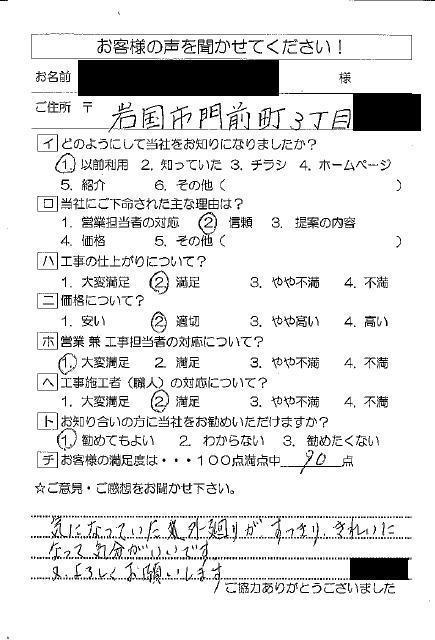 お客様の声を聞かせてください!
お名前 様
ご住所 〒 岩国市門前町3丁目
イ どのようにして当社をお知りになりましたか?
1. 以前利用 2. 知っていた 3. チラシ 4. ホームページ
5. 紹介 6. その他( )
ロ 当社にご下命された主な理由は?
1. 営業担当者の対応 2 信頼 3. 提案の内容
4. 価格 5. その他( )
ハ 工事の仕上がりについて?
1. 大変満足 2. 満足 3. やや不満 4. 不満
ニ 価格について?
1. 安い 2 適切 3. やや高い 4. 高い
ホ 営業 兼 工事担当者の対応について?
1. 大変満足 2. 満足 3. やや不満 4. 不満
ヘ 工事施工者(職人)の対応について?
1. 大変満足 2. 満足 3. やや不満 4. 不満
ト お知り合いの方に当社をお勧めいただけますか?
1. 勧めてもよい 2. わからない 3. 勧めたくない
チ お客様の満足度は・・・100点満点中 90 点
☆ご意見・ご感想をお聞かせ下さい。
気になっていた 外廻りが すっきり、きれいに
なって 気分がいいです
又、よろしくお願いします
ご協力ありがとうございました